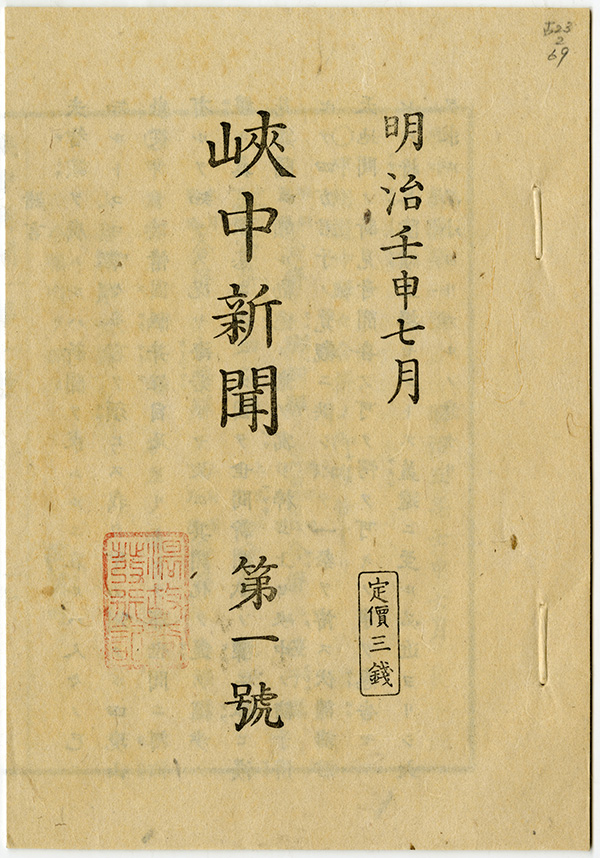 明治壬申七月
定價三錢
峽中新聞
第一號
23
2
69